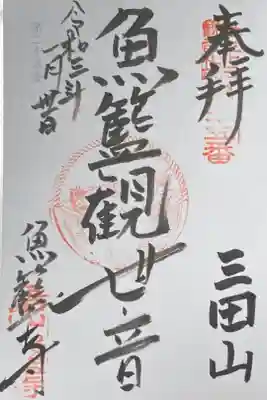 奉拝
三田山
魚籃観世音
令和三年
一月廿日
魚籃寺